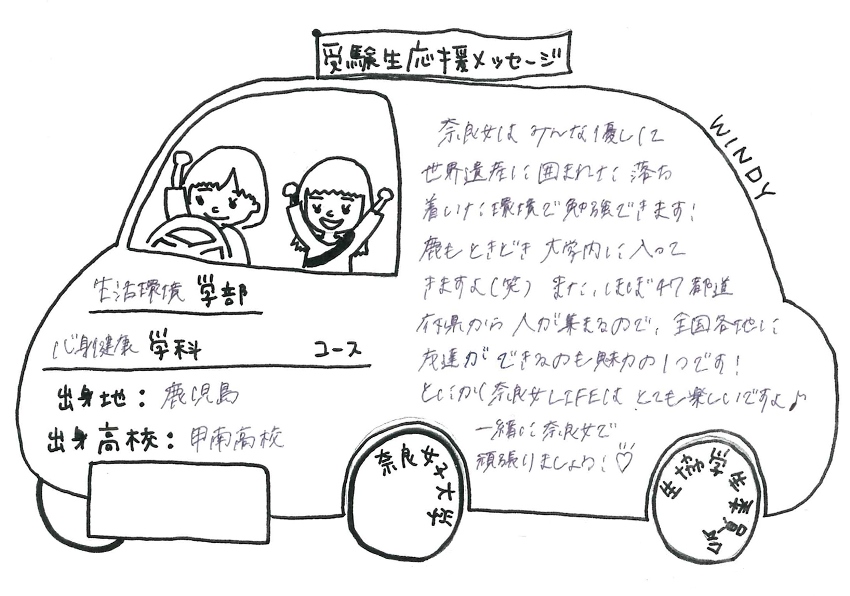 受験生応援メッセージ
WINDY
奈良女は みんな優しくて
世界遺産に囲まれた 落ち
着いた環境で勉強できます!
鹿もときどき 大学内に入って
きますよ(笑) また、ほぼ47都道
府県から 人が集まるので、全国各地に
友達ができるのも魅力の1つです!
とにかく奈良女LIFEは とても楽しいですよ♪
一緒に奈良女で
頑張りましょう!♡
生活環境 学部
心身健康 学科 コース
出身地: 鹿児島
出身高校: 甲南高校
奈良女子大学
生協学生委員会